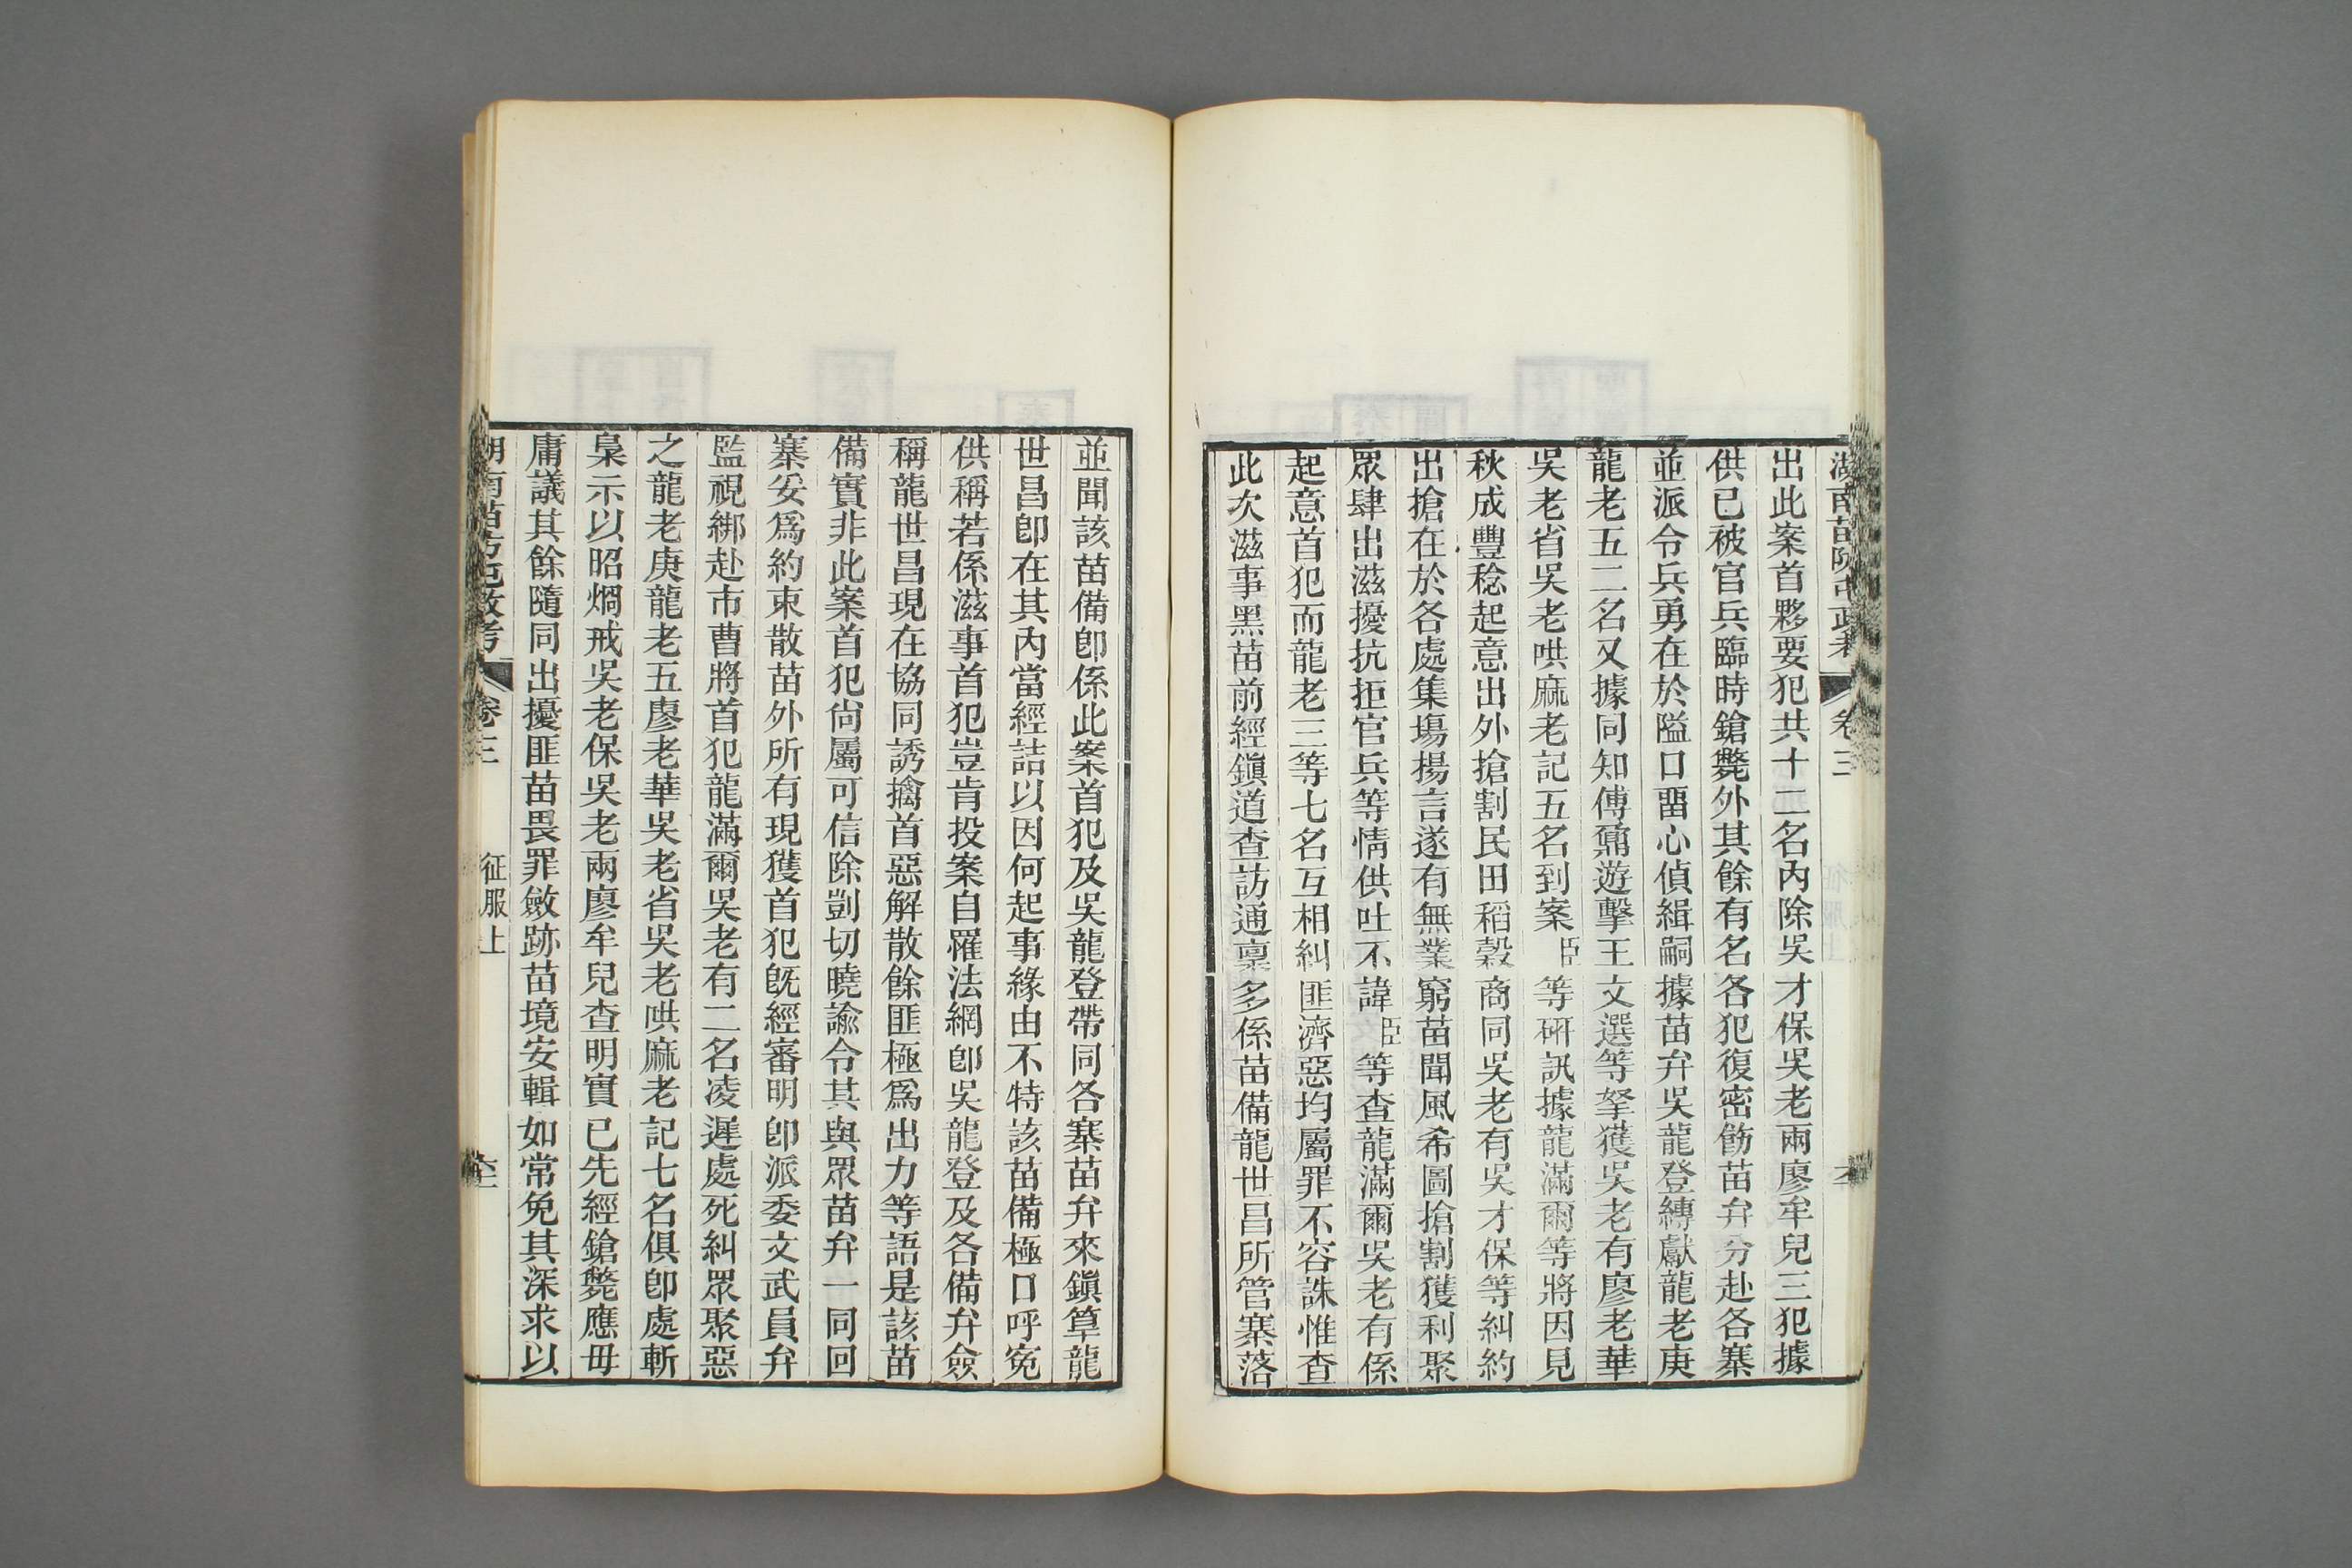 湖南苗防屯政考 卷三
出此案首夥要犯共十二名內除吳才保吳老兩廖牟兒三犯據
供已被官兵臨時鎗斃外其餘有名各犯復密飭苗弁分赴各寨
並派令兵勇在於隘口畱心偵緝嗣據苗弁吳龍登縛獻龍老庚
龍老五二名又據同知傅鼐遊擊王文選等拏獲吳老有廖老華
吳老省吳老哄麻老記五名到案臣等硏訊據龍滿爾等將因見
秋成豐稔起意出外搶割民田稻穀商同吳老有吳才保等糾約
出搶在於各處集場揚言遂有無業窮苗聞風希圖搶割獲利聚
眾肆出滋擾抗拒官兵等情供吐不諱臣等查龍滿爾吳老有係
起意首犯而龍老三等七名互相糾匪濟惡均屬罪不容誅惟查
此次滋事黑苗前經鎭道查訪通禀多係苗備龍世昌所管寨落
並聞該苗備卽係此案首犯及吳龍登帶同各寨苗弁來鎭筸龍
世昌卽在其內當經詰以因何起事緣由不特該苗備極口呼寃
供稱若係滋事首犯豈肯投案自罹法網卽吳龍登及各備弁僉
稱龍世昌現在協同誘擒首惡解散餘匪極爲出力等語是該苗
備實非此案首犯尙屬可信除剴切曉諭令其與眾苗弁一同回
寨妥爲約束散苗外所有現獲首犯旣經審明卽派委文武員弁
監視綁赴市曹將首犯龍滿爾吳老有二名凌遲處死糾眾聚惡
之龍老庚龍老五廖老華吳老省吳老哄麻老記七名俱卽處斬
梟示以昭烱戒吳老保吳老兩廖牟兒查明實已先經鎗斃應毋
庸議其餘隨同出擾匪苗畏罪斂跡苗境安輯如常免其深求以
湖南苗防屯政考 卷三 征服上